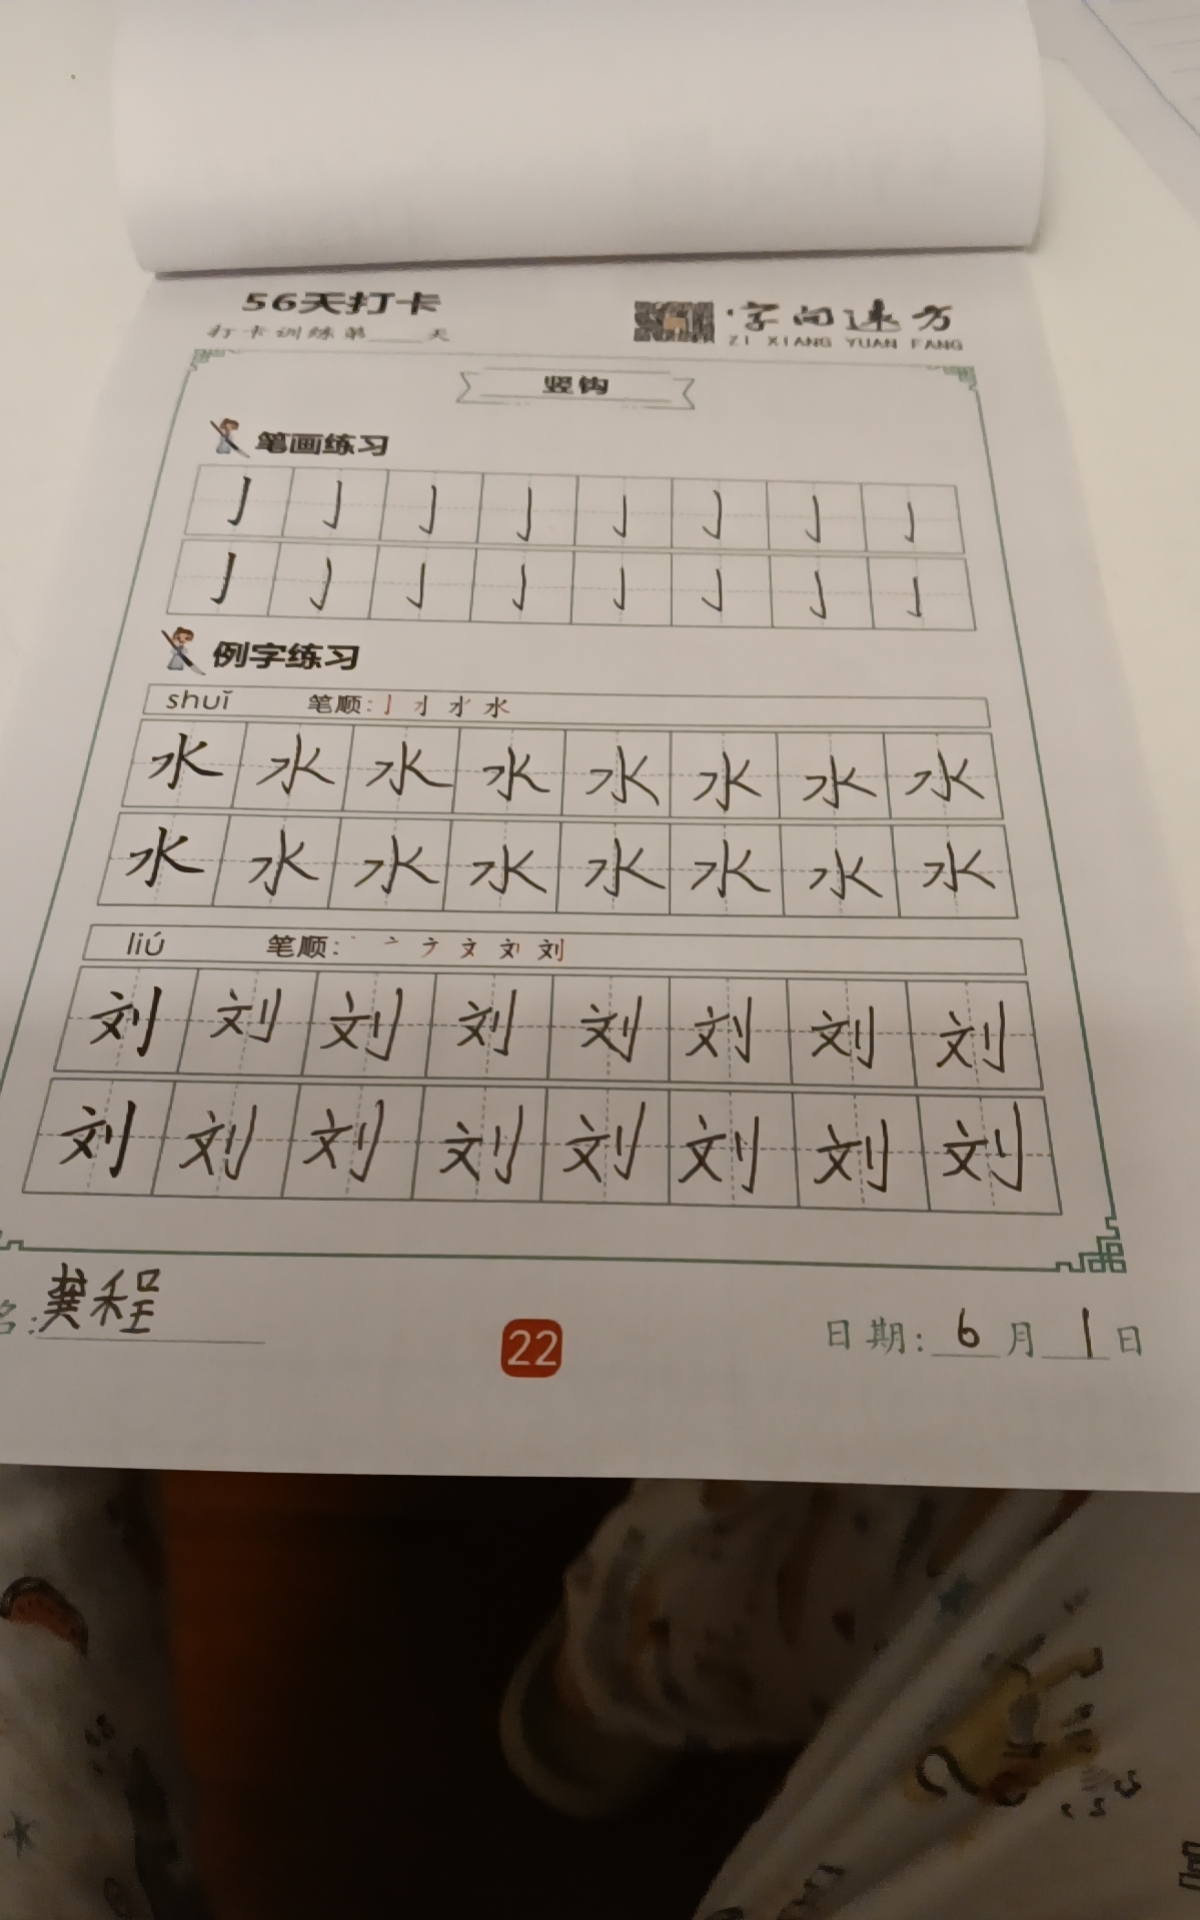 56天打卡
打卡训练第____天
字向速方
ZI XIANG YUAN FANG
竖钩
笔画练习
亅亅亅亅亅亅亅亅
亅亅亅亅亅亅亅亅
例字练习
shuǐ 笔顺:
水水水水水水水水
水水水水水水水水
liú 笔顺:
刘刘刘刘刘刘刘刘
刘刘刘刘刘刘刘刘
名:龚程
22
日期:6月1日